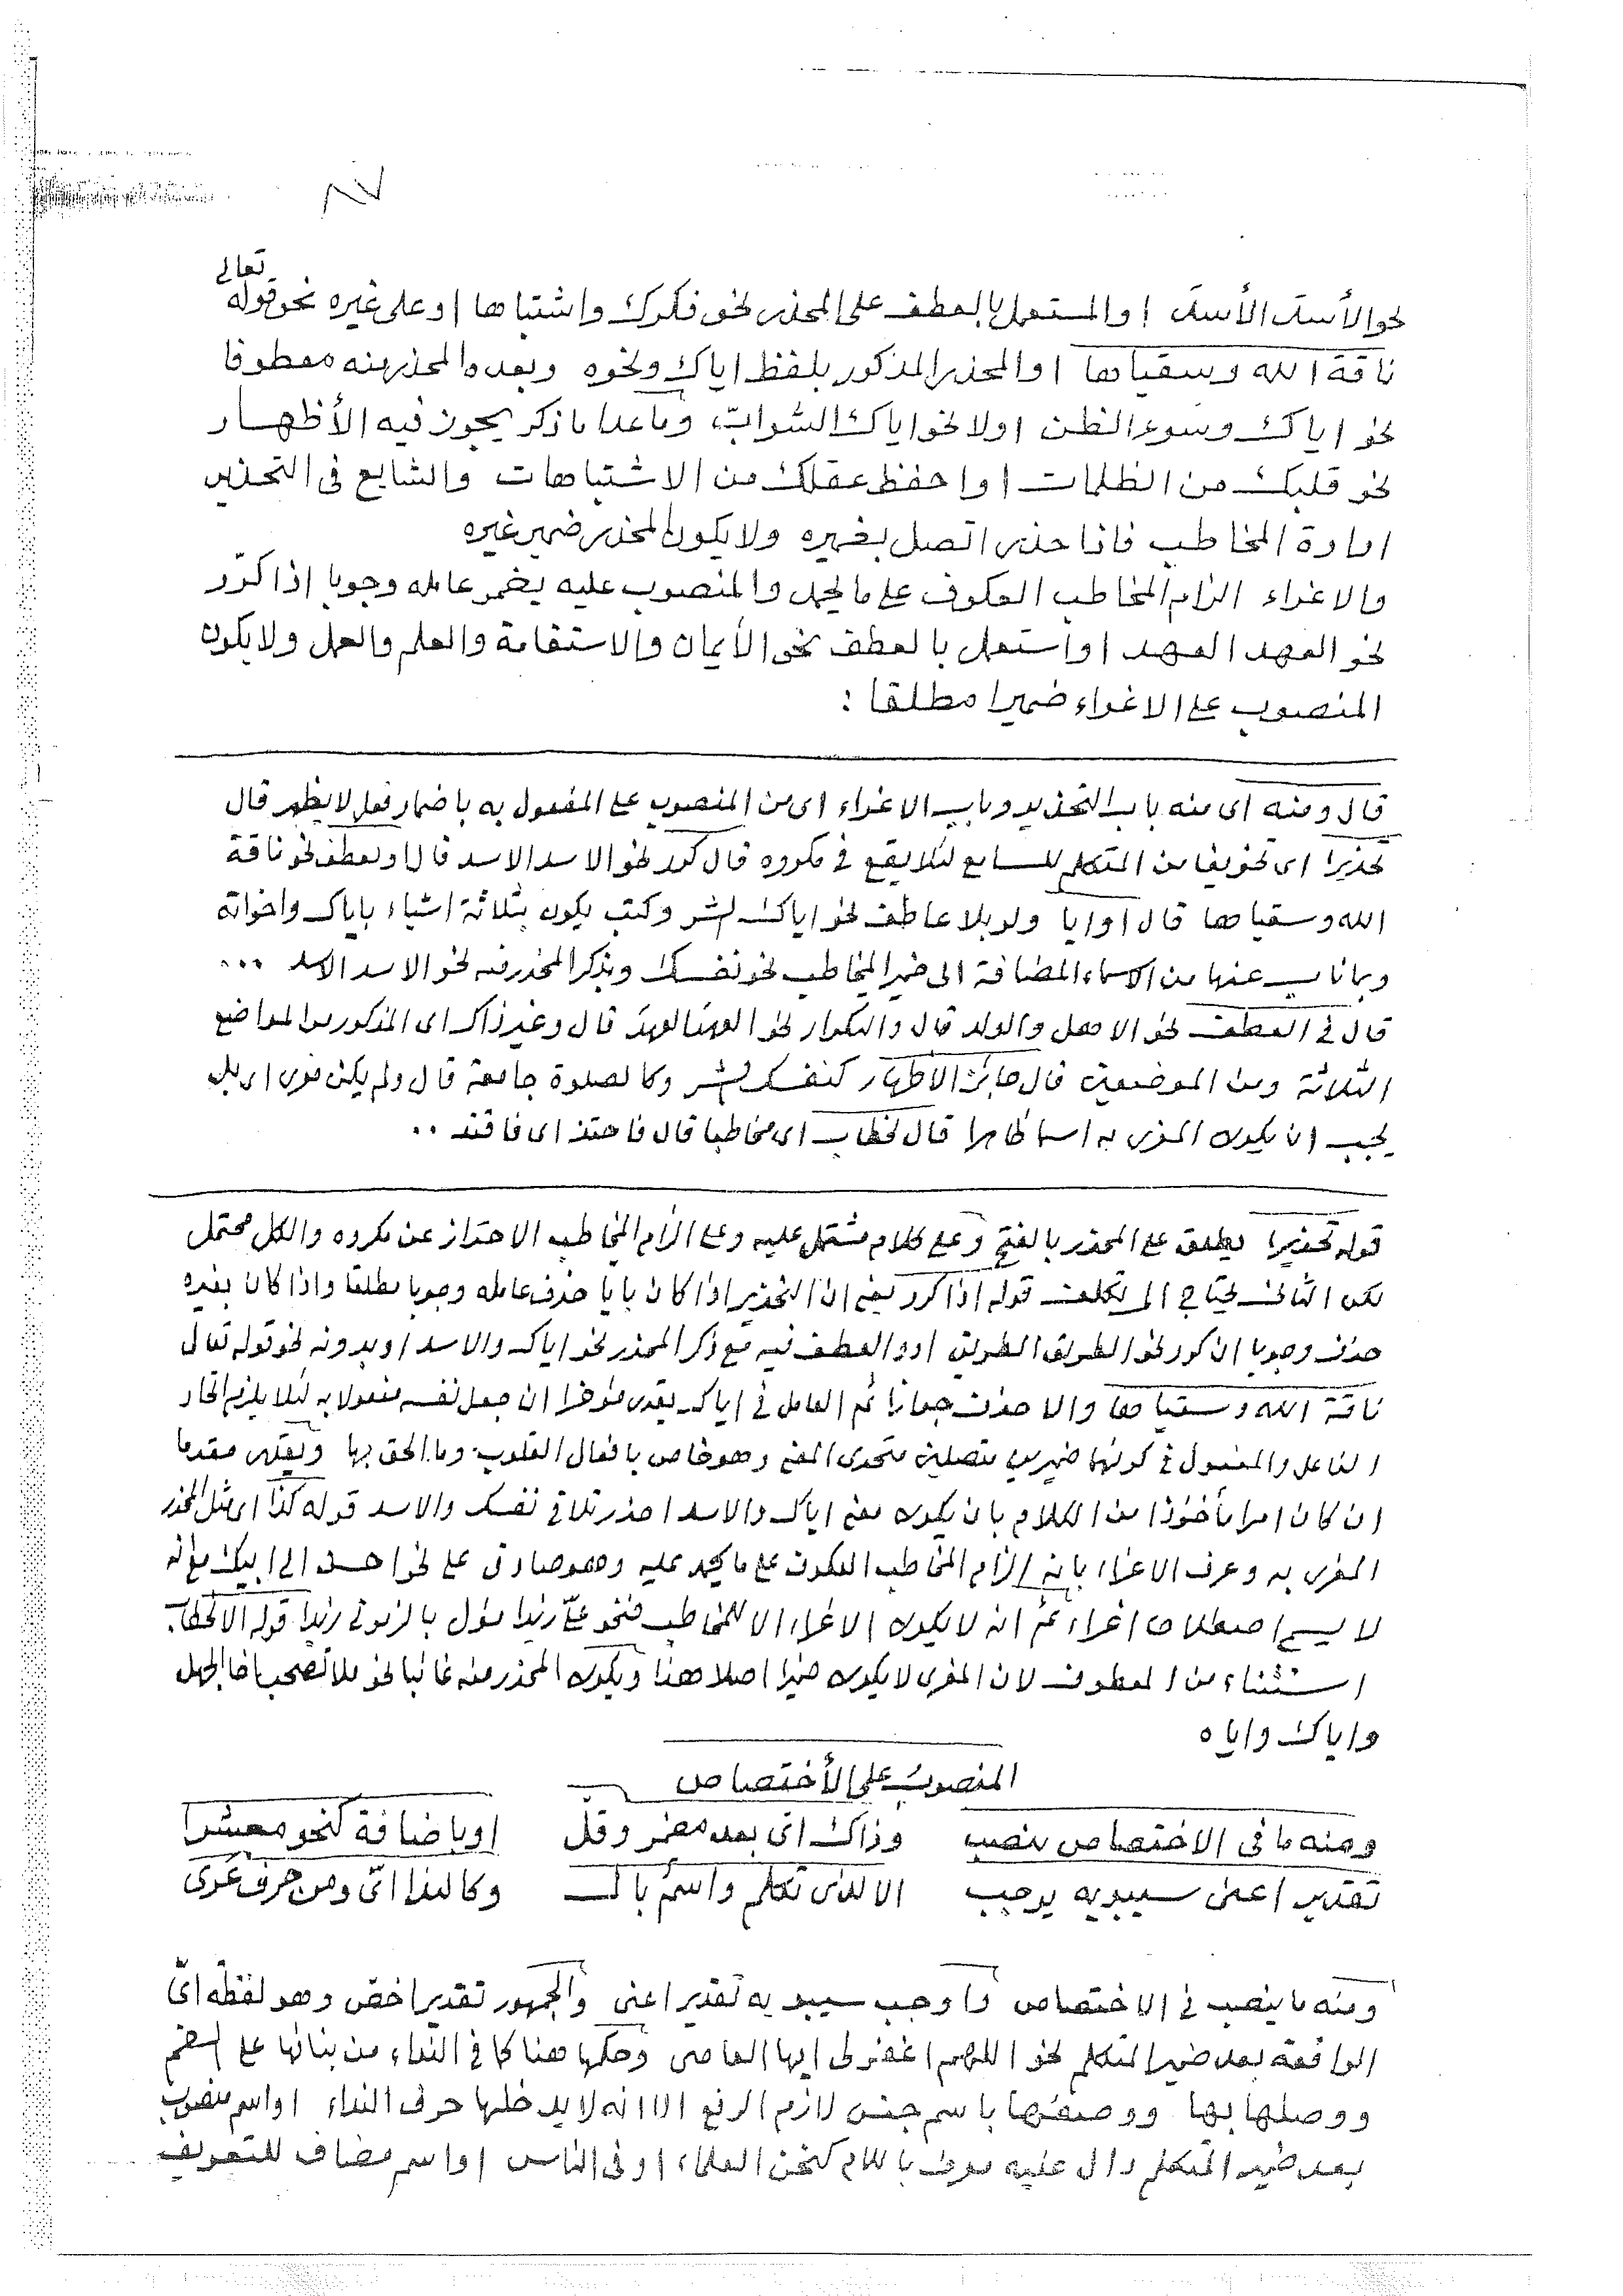 ٨٧
تعالى
نحو الأسد الأسد او المستعمل بالعطف على المحذر نحو فكرك واشتباها او على غيره نحو قوله
ناقة الله وسقياها او المحذر المذكور بلفظ اياك ونحوه وبعده المحذر منه معطوفا
نحو اياك وسوء الظن اولا نحو اياك الشراب، وما عدا ما ذكر يجوز فيه الأظهار
نحو قلبك من الظلمات او احفظ عقلك من الاشتباهات والشايع فى التحذير
ارادة المخاطب فاذا حذر اتصل بضميره ولا يكون المحذر ضمير غيره
والاغراء الزام المخاطب العكوف على ما يحمل والمنصوب عليه يضمر عامله وجوبا اذا كرّر
نحو العهد العهد او استعمل بالعطف نحو الأيمان والاستقامة والعلم والعمل ولا يكون
المنصوب على الاغراء ضميرا مطلقا :
قال ومنه اى منه باب التحذير وباب الاغراء اى من المنصوب على المفعول به باضمار فعل لا يظهر قال
تحذيرا اى تخويفا من المتكلم للسامع لئلا يقع فى مكروه قال كرر نحو الاسد الاسد قال او بعطف نحو ناقة
الله وسقياها قال او ايا ولو بلا عاطف نحو اياك الشر وكتب يكون بثلاثة اشياء باياك واخواته
وبما ناب عنها من الاسماء المضافة الى ضمير المخاطب نحو نفسك وبذكر المحذر منه نحو الاسد الاسد ...
قال فى العطف نحو الاهل والولد قال والتكرار نحو العهد العهد قال وغير ذاك اى المذكور من المواضع
الثلاثة ومن الموضعين قال جائز الاظهار كنفسك الشر وكالصلوة جامعة قال ولم يكن سوى اى بل
يجب ان يكون المغرى به اسما ظاهرا قال لخطاب اى مخاطبا قال فاحتذ اى فاقتد ..
قوله تحذيرا يطلق على المحذر بالفتح وعلى كلام مشتمل عليه وعلى الزام المخاطب الاحتراز عن مكروه والكل محتمل
لكن الثانى يحتاج الى تكلف قوله اذا كرر يعنى ان التحذير اذا كان بايا حذف عامله وجوبا مطلقا واذا كان بغيره
حذف وجوبا ان كرر نحو الطريق الطريق او والعطف فيه مع ذكر المحذر نحو اياك والاسد او بدونه نحو قوله تعالى
ناقة الله وسقياها والا حذف جوازا ثم العامل فى اياك يقدر مؤخرا ان جعل نفسه مفعولا به لئلا يلزم اتحاد
الفاعل والمفعول فى كونهما ضميرين متصلين متحدى المعنى وهو خاص بافعال القلوب وما الحق بها ويقدر مقدما
ان كان امرا مأخوذا من الكلام بان يكون معنى اياك والاسد احذر تلاقى نفسك والاسد قوله كذا اى مثل المحذر
المغرى به وعرف الاغراء بانه الزام المخاطب العكوف على ما يحمد عليه وهو صادق على نحو احسن الى ابيك مع انه
لا يسمى اصطلاحا اغراء ثم انه لا يكون الاغراء الا للمخاطب فنحو علىّ زيدا مؤل بالزمونى زيدا قوله الا لخطاب
استثناء من المعطوف لان المغرى لا يكون ضميرا اصلا هذا ويكون المحذر منه غائبا نحو فلا تصحب اخا الجهل
واياك واياه
المنصوب على الأختصاص
ومنه ما فى الاختصاص ينصب وذاك اىّ بعد مضمر وقل او باضافة كنحو معشرا
تقدير اعنى سيبويه يوجب الا للذى تكلم واسمٌ بال وكالندا اىّ ومن حرف عَرَى
ومنه ما ينصب فى الاختصاص واوجب سيبويه تقدير اعنى والجمهور تقدير اخص وهو لفظه اىّ
الواقعة بعد ضمير المتكلم نحو اللهم اغفر لى ايها العاصى وحكمها هنا كما فى النداء من بنائها على الضم
ووصلها بها ووصفها باسم جنس لازم الرفع الا انه لا يدخلها حرف النداء او اسم منصوب
بعد ضمير المتكلم دال عليه معرف باللام كنحن العلماء او فى الناس او اسم مضاف للتعريف